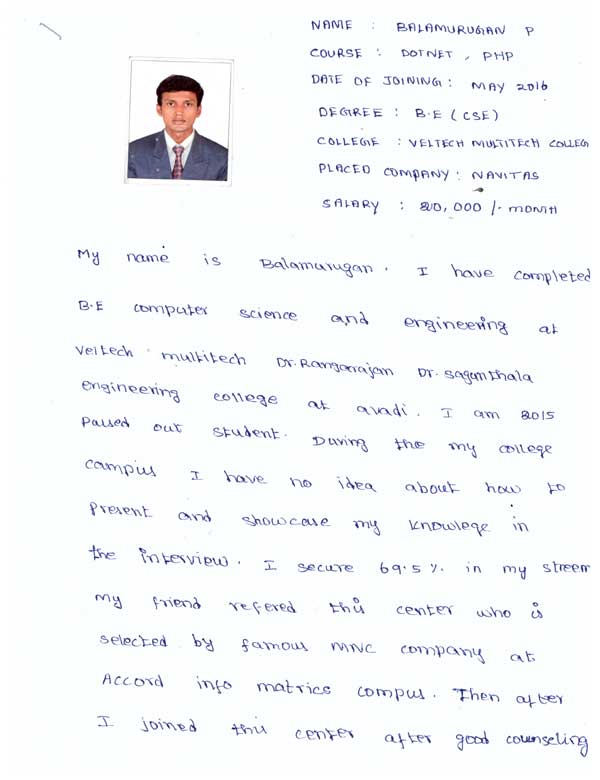 NAME : BALAMURUGAN P
COURSE : DOTNET , PHP
DATE OF JOINING : MAY 2016
DEGREE : B.E ( CSE )
COLLEGE : VELTECH MULTITECH COLLEG
PLACED COMPANY : NAVITAS
SALARY : 20,000 /- MONTH
My name is Balamurugan . I have completed
B.E computer science and engineering at
veltech multitech Dr.Rangarajan Dr. Sagunthala
engineering college at avadi . I am 2015
passed out student . During the my college
campus I have no idea about how to
present and showcase my knowlege in
the interview . I secure 69.5 % in my streem
my friend refered this center who is
selected by famous MNC company at
Accord info matrics campus . Then after
I joined this center after good counseling